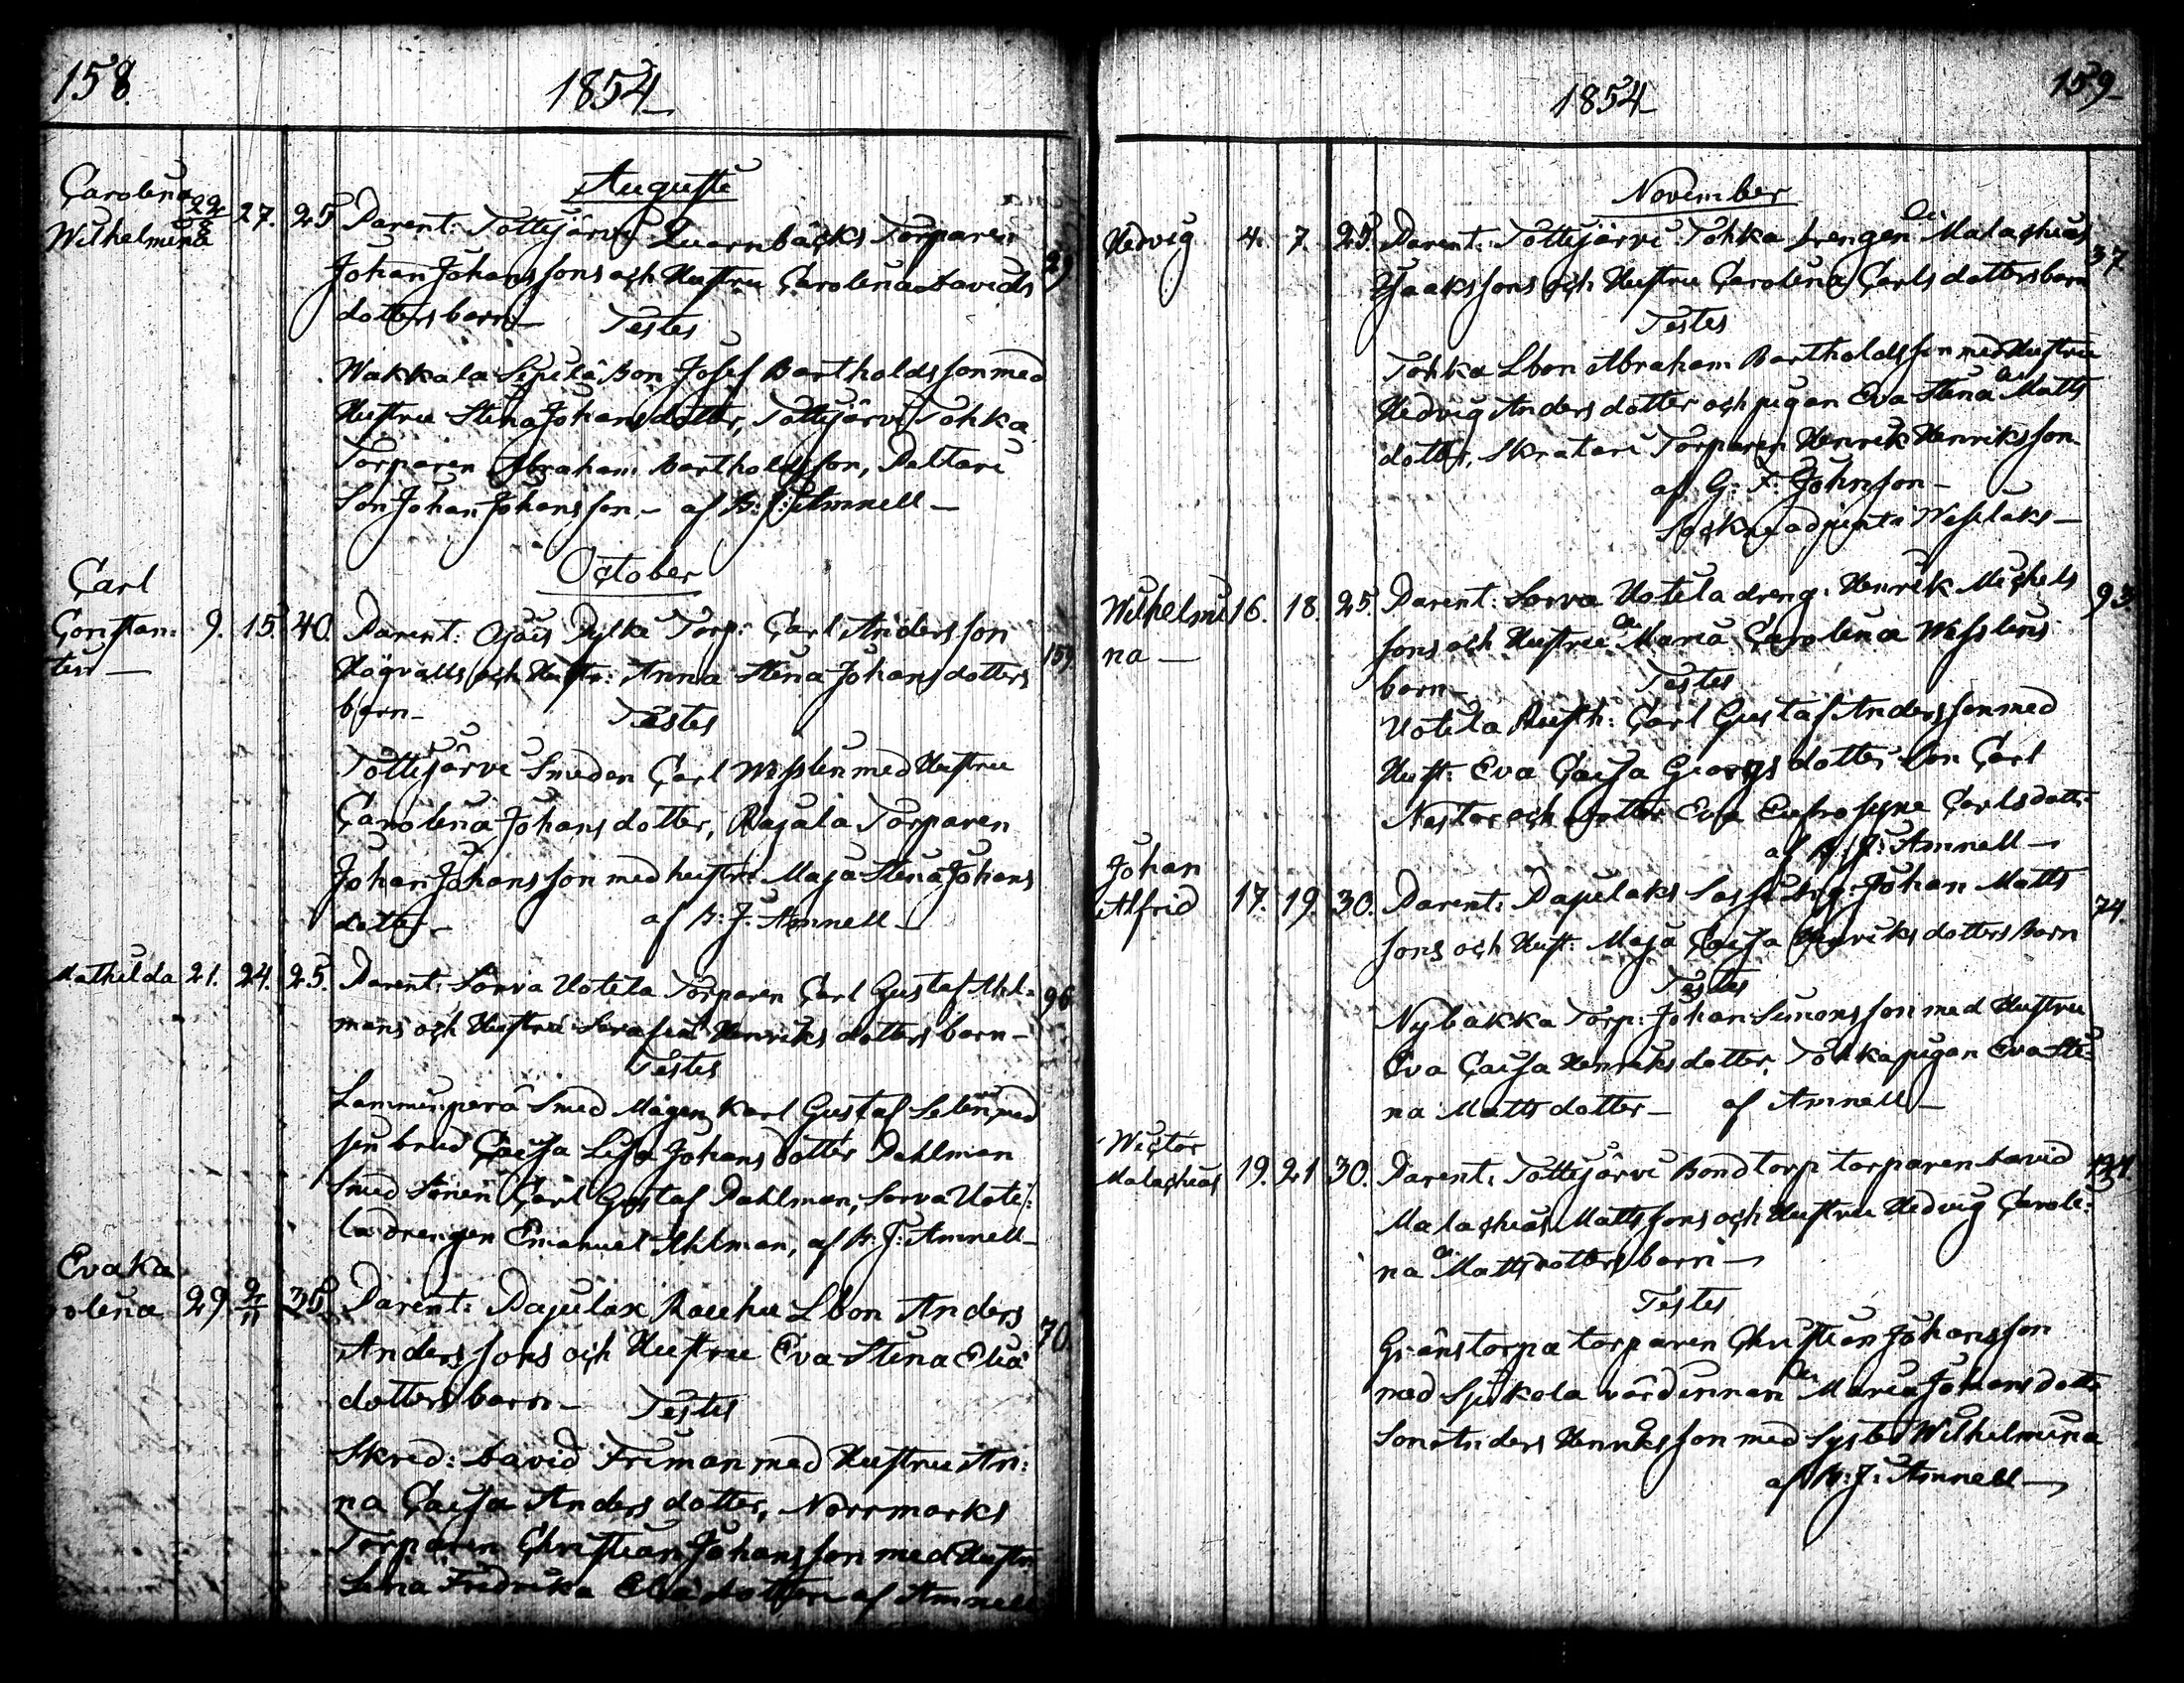 158.
1854
Augusti
Carolina Wilhelmina 22/8 27. 25 Parent: Tottijärvi Quarnbäcks Torparen 29
Johan Johanssons och Hustru Carolina Davids
dotters barn — Testes
Wakkala Sipilä Bon Josef Bartholdsson med
Hustru Stina Johansdotter, Tottijärvi Tohka
Torparen Abraham Bartholdsson, Paltari
Son Johan Johansson — af A: J: Amnell —
October
Carl Constantin — 9. 15. 40. Parent: Ojais Pylkä Torp: Carl Andersson 159
Högvalls och Hustr: Anna Stina Johansdotters
barn — Testes
Tottijärvi Smeden Carl Wesslin med Hustru
Carolina Johansdotter, Rajala Torparen
Johan Johansson med hustru Maja Stina Johans
dotter — af A: J: Amnell —
Mathilda 21. 24. 25. Parent: Sorva Uotila Torparen Carl Gustaf Ahl- 96
mans och Hustru Serafia Henriksdotters barn —
Testes
Lamminperä Smed Mågen Karl Gustaf Selin med
sin brud Caisa Lisa Johansdotter Dahlman
Smed Sonen Carl Gustaf Dahlman, Sorva Uoti-
la drengen Emanuel Ahlman, af A: J: Amnell —
Eva Karolina 29 2/11 35. Parent: Pajulax Rauhu Lbon Anders 70.
Anderssons och Hustru Eva Stina Elia
dotters barn — Testes
Skred: David Friman med Hustru An:
na Caisa Andersdotter, Norrmarks
Torparen Christian Johansson med Hustr:
Lena Fredrika Eliedotter af Amnell
159
1854
November
Hedvig 4. 7. 25. Parent: Tottijärvi Tohka drengen Malachias 37
Isaakssons och Hustru Carolina Carlsdotters barn
Testes
Tohka Lbon Abraham Bartholdsson med Hustru
Hedvig Andersdotter och pigan Eva Stina Matts
dotter, Skratari Torparen Henrik Henriksson
af G: F: Johnson —
Sockneadjunkt i Wesilaks —
Wilhelmina — 16. 18. 25. Parent: Sorva Uotila dreng: Henrik Michels 93.
sons och Hustru Maria Carolina Wesslins
barn — Testes
Uotila Rusth: Carl Gustaf Andersson med
Hust: Eva Caisa Georgsdotter Son Carl
Nestor och dotter Eva Eufrosyne Carlsdotter
af A: J: Amnell —
Johan Alfrid 17. 19. 30. Parent: Pajulaks Sassi Dreng: Johan Matts 74.
sons och Hust: Maja Caisa Henriksdotters Barn
Testes
Nybakka Torp: Johan Simonsson med Hustru
Eva Caisa Henriksdotter, Tohka pigan Eva Sti-
na Mattsdotter — af Amnell —
Wictor Malachias 19. 21 30. Parent: Tottijärvi Bondtorp torparen David
Malachias Mattssons och Hustru Hedvig Caroli:
na Mattsdotters barn —
Testes
Gränstorpa torparen Christian Johansson
med Sjukola värdinnan Maria Johansdotter
Son Anders Henriksson med Syster Wilhelmina
af A: J: Amnell —